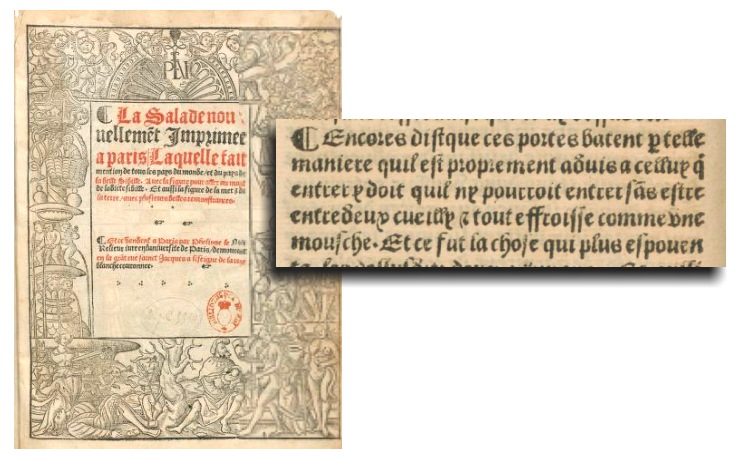 La Salade nou
uellemẽt Imprimee
a paris Laquelle fait
mention de tous les pays du monde / et du pays de
la belle Sibille. Auec la figure pour aller au mont
de la dicte sibille. Et aussi la figure de la mer & de
la terre / auec plusieurs belles remonstrances.
en la grãt rue sainct Jacques a lenseigne de la rose
blanche couronnee.
Encores dist que ces portes batent p telle
maniere quil est proprement aduis a celluy q̃
entrer y doit quil ny pourroit entrer sãs estre
entredeux cueilly & tout effroisse comme vne
mousche. Et ce fut la chose qui plus espouen